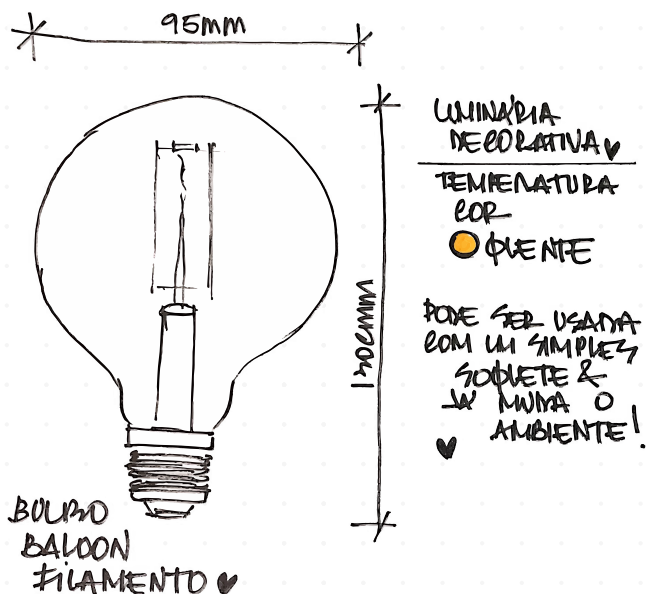 95mm
LUMINÁRIA
DECORATIVA
TEMPERATURA
COR
QUENTE
130mm
PODE SER USADA
COM UM SIMPLES
SOQUETE &
JÁ MUDA O
AMBIENTE!
BULBO
BALOON
FILAMENTO